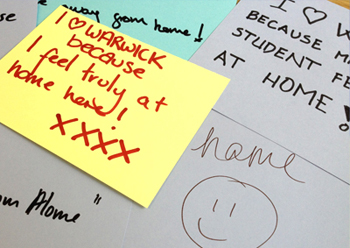 away from home!
I ♡ WARWICK
because
I feel truly at
home here!
xxxx
I ♡ W
BECAUSE MA
STUDENT FE
AT HOME!
home
om Home"